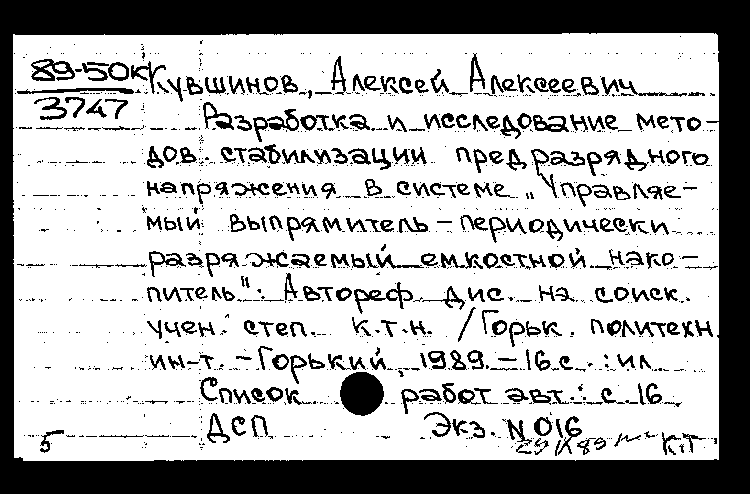 89-50кк
3747
Кувшинов, Алексей Алексеевич
Разработка и исследование мето-
дов стабилизации предразрядного
напряжения в системе „Управляе-
мый выпрямитель – периодически
разряжаемый емкостной нако-
питель": Автореф дис. на соиск.
учен. степ. к.т.н. / Горьк. политехн.
ин-т. – Горький, 1989. – 16 с. : ил
Список работ авт.: с. 16
ДСП Экз. N 016
5 КТ